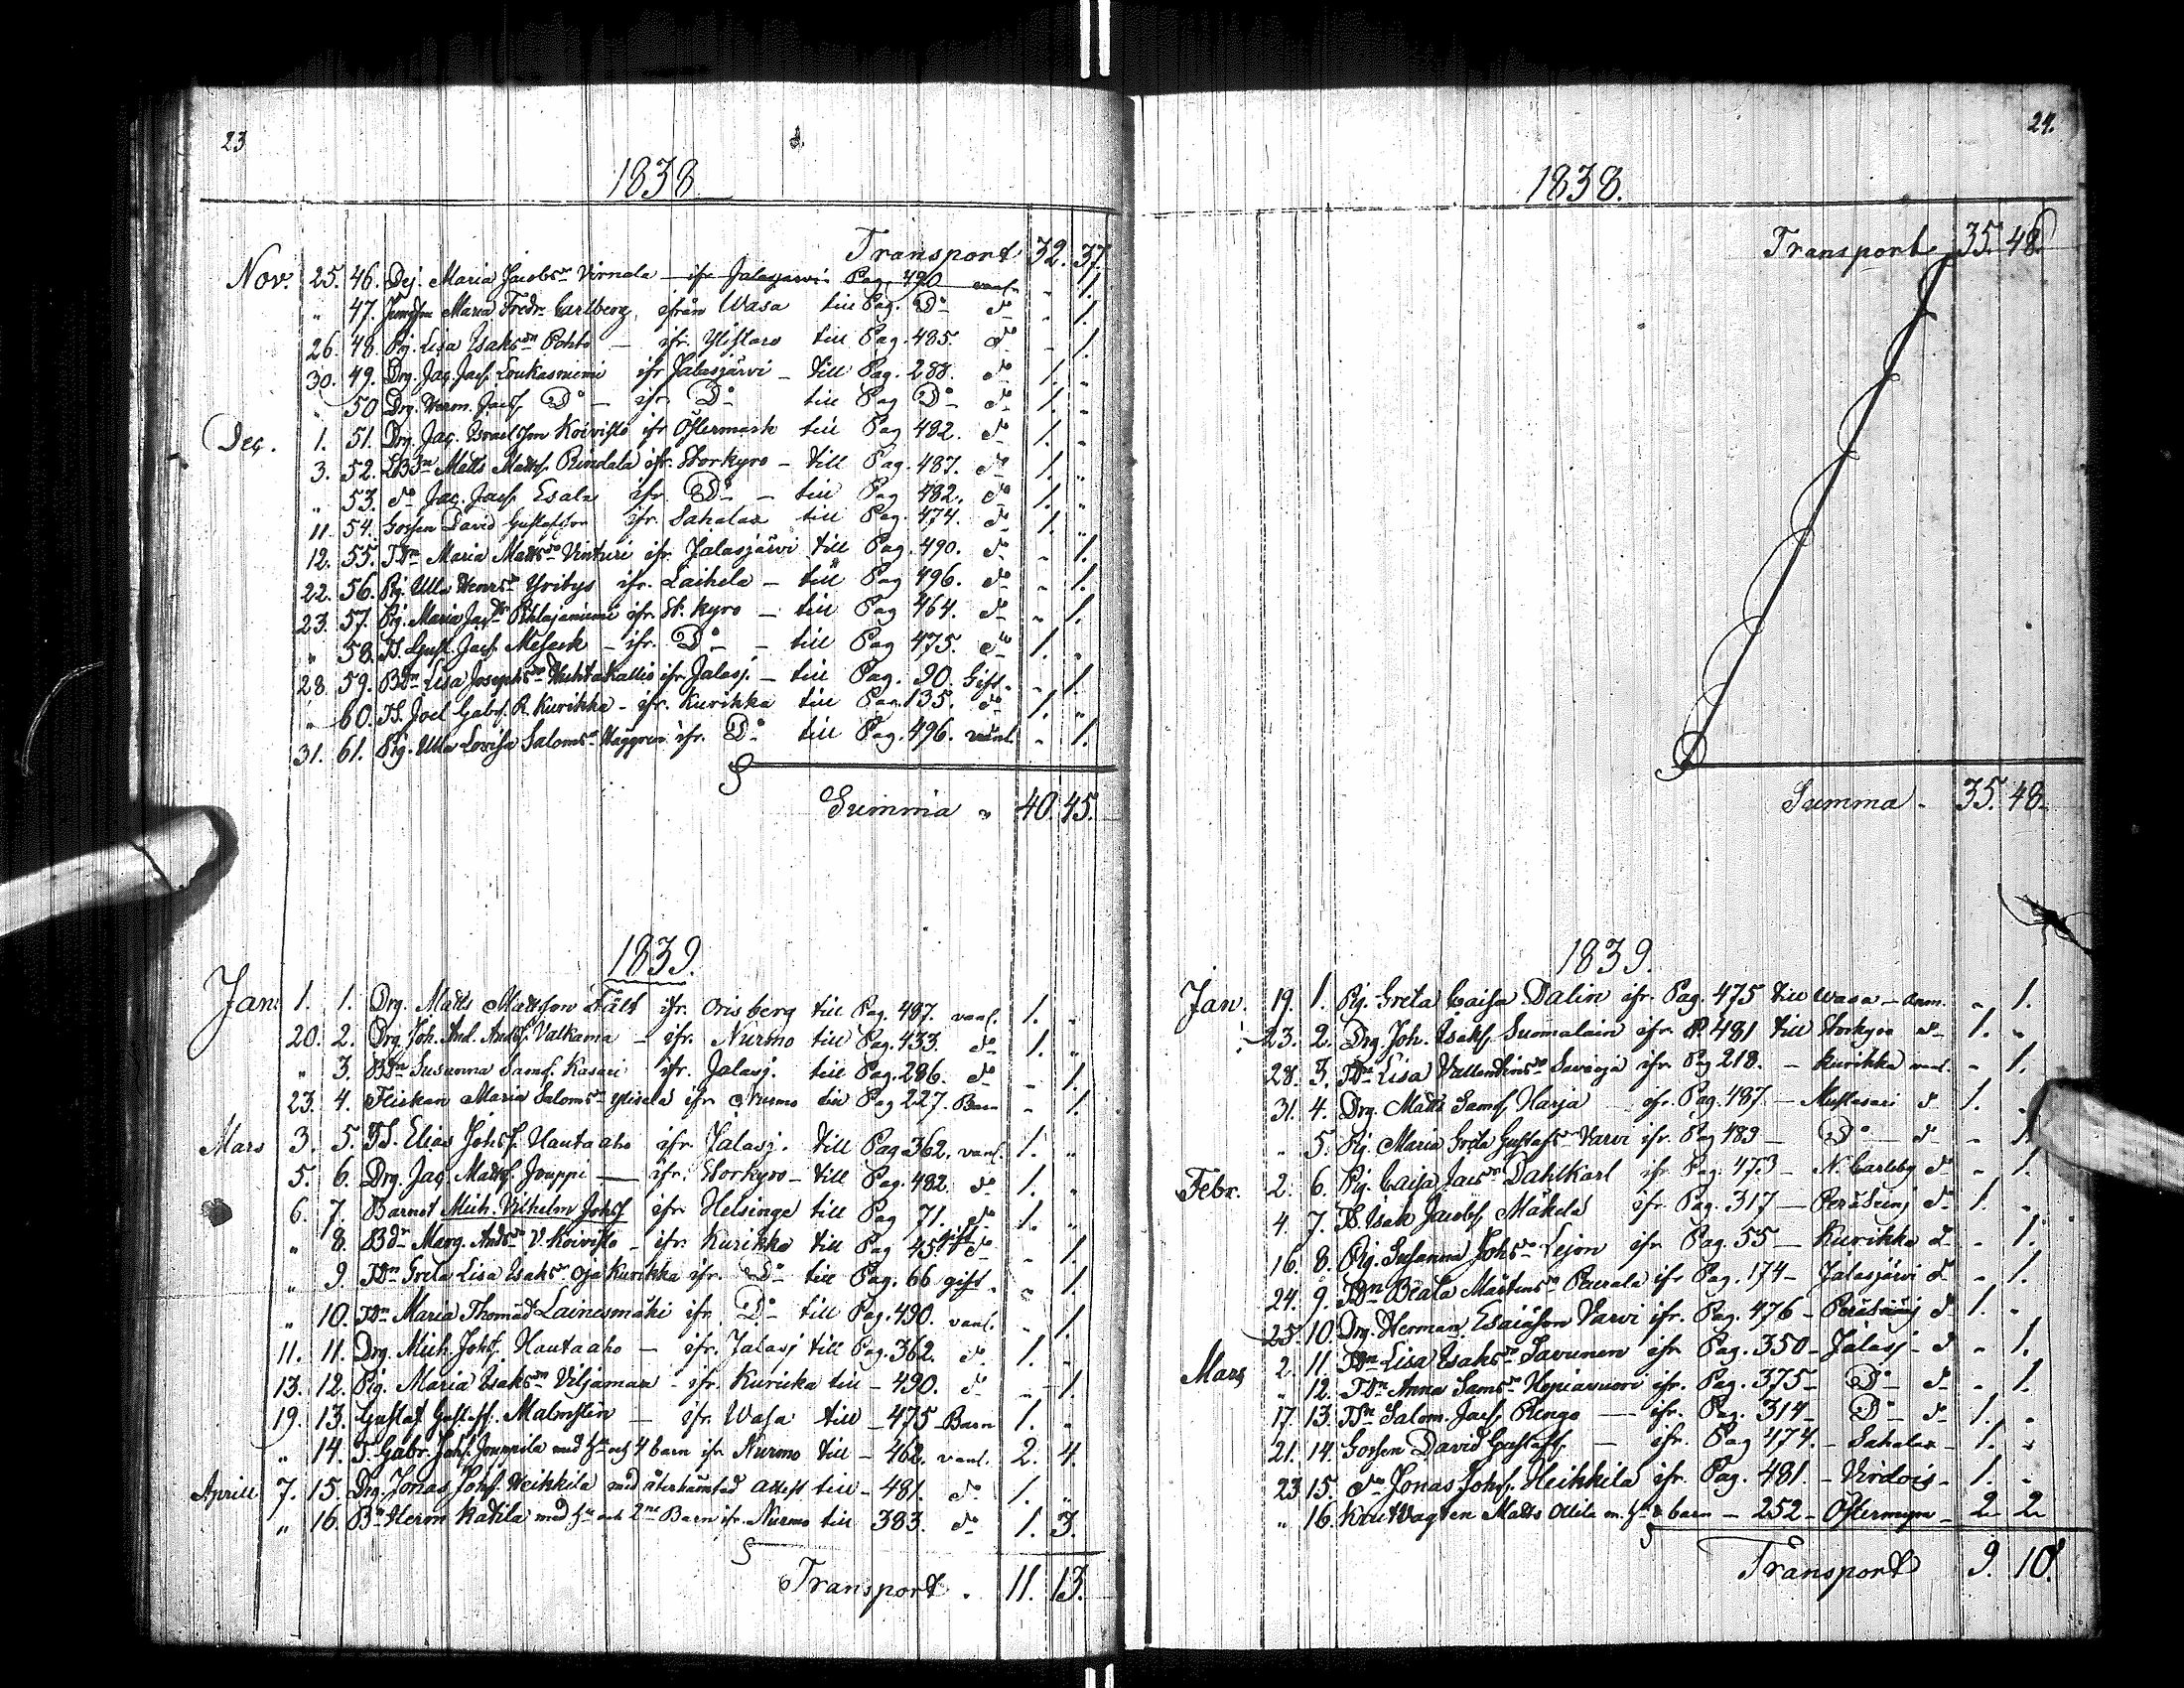 23
1838
Transport 32. 37.
Nov. 25. 46. Pig. Maria Jacobsdr Virnala – ifr Jalasjärvi Pag. 490 vanl. „ 1.
„ 47. Jungfru Maria Fredr. Carlberg, ifrån Wasa till Pag. Do do „ 1.
26. 48. Pig. Lisa Isaksdr Pohto – ifr. Ylistaro till Pag. 485. do – 1.
30. 49. Drg. Jac. Jacs. Loukasniemi ifr Jalasjärvi – till Pag. 288. do 1. „
„ 50 Drg. Herm. Jacs. Do – ifr. Do till Pag Do do 1. „
Dec. 1. 51. Drg. Jac. Israelsson Koivisto ifr Östermark till Pag 482. do 1. „
3. 52. Matts Matts. Rindala ifr. Storkyro – till Pag. 487. do 1. „
„ 53. do Jac. Jacs. Esala ifr. Do – till Pag 482. do 1. „
11 54. Gossen David Gustafsson ifr. Sahalax till Pag. 474. do 1. „
12. 55. TDr Maria Mattsdr Vinturi ifr. Jalasjärvi till Pag. 490. do „ 1.
22. 56. Pig. Ulla Henrsdr Yritys ifr. Laihela – till Pag 496. do „ 1.
23. 57. Pig. Maria Jacsdr Pihlajaniemi ifr. St. kyro – till Pag 464. do „ 1.
„ 58. TS. Gust. Jacs. Mesack – ifr. Do – till Pag 475. do 1. „
28. 59. BDr Lisa Josephsdr Huhtakallio ifr Jalasj. – till Pag. 90. Gift. „ 1.
„ 60. TS. Joel Gabrs. R. Kurikka – ifr. Kurikka till Pag. 135. do 1. „
31. 61. Pig. Ulla Lovisa Salomsdr Haggren ifr. Do till Pag. 496. vanl. „ 1.
Summa „ 40. 45.
1839.
Jan. 1. 1. Drg. Matts Mattsson Fält ifr. Orisberg till Pag. 487. vanl. 1. „
20. 2. Drg. Joh. And. Ands. Valkama – ifr. Nurmo till Pag. 433. do 1. „
„ 3. BDr Susanna Sams. Kasari ifr. Jalasj. till Pag. 286. do „ 1.
23. 4. Flickan Maria Salomsdr Ylisela ifr Nurmo till Pag 227. Barn „ 1.
Mars 3. 5. TS. Elias Johs. Hautaaho ifr. Jalasj. till Pag 362. vanl. 1. „
5. 6. Drg. Jac. Matts. Jouppi – ifr. Storkyro – till Pag. 482. do 1. „
6. 7. Barnet Mich. Vilhelm Johs. ifr Helsinge till Pag 71. do 1. „
„ 8. Bdr Marg. Andsdr V. Koivisto – ifr. Kurikka till Pag 45. gift do „ 1.
„ 9. TDr Greta Lisa Isaksdr Oja Kurikka ifr. Do till Pag. 66 gift. „ 1.
„ 10. TDr Maria Thomasd. Lainesmäki ifr. Do till Pag. 490. vanl. „ 1.
11. 11. Drg. Mich. Johs. Hautaaho – ifr. Jalasj till Pag. 362. do 1. „
13. 12. Pig. Maria Isaksdr Viljamaa – ifr. Kuricka till – 490. do „ 1.
19. 13. Gustaf Gustafs. Malmsten – ifr. Wasa till – 475 Barn 1. „
„ 14. T. Gabr. Johs. Jouppila med hu och 4 barn ifr Nurmo till – 462. vanl. 2. 4.
Aprill 7. 15. Drg. Jonas Johs. Heikkilä med återhämtad attest till – 481. do 1. „
„ 16. Bo Herm Katila med hu och 2ne Barn ifr. Nurmo till 383. do 1. 3.
Transport . 11. 13.
24.
1838.
Transport 35. 48.
Summa . 35. 48.
1839.
Jan. 19. 1. Pig. Greta Caisa Dalin ifr. Pag. 475 till Wasa – Anm. „ 1.
23. 2. Drg. Joh. Isaks. Suomalain ifr. P. 481 till Storkyro do 1. „
28. 3. TDr Lisa Vallentinsdr Savioja ifr Pag 218. – Kurikka vanl. „ 1.
31. 4. Drg. Matts Sams. Harja – ifr. Pag. 487. – Mustasari do 1. „
„ 5. Pig. Maria Greta Gustafsdr Varvi ifr. Pag 489 – Do – do „ 1.
Febr. 2. 6. Pig. Caisa Jacsdr Dahlkarl ifr. Pag. 473 – N. Carleby do „ 1.
4. 7. TS. Isak Jacobs. Mäkelä ifr. Pag. 317 – Peräseinj do 1. „
16. 8. Pig. Susanna Johsdr Lejon ifr Pag. 55 – Kurikka do „ 1.
24. 9. TDr Beata Mårtensdr Peurala ifr Pag. 174 – Jalasjärvi do „ 1.
25. 10. Drg. Herman Esaiæson Varvi ifr. Pag. 476 – Peräseinj do 1. „
Mars 2. 11. TDr Lisa Isaksdr Savunen ifr Pag. 350 – Jalasj – do „ 1.
„ 12. TDr Anna Samsdr Hopiavuori ifr. Pag. 375 – Do do „ 1.
17. 13. Salom. Jacs. Rengo – ifr. Pag. 314 – Do – do 1. „
21. 14. Gossen David Gustafs. – ifr. Pag 474. – Sahalax – 1. „
23 15. do Jonas Johs. Heikkilä ifr. Pag. 481. – Virdois – 1. „
„ 16. Knutvagten Matts Ollila m. hu & barn – 252 – Östermyra – 2 2
Transport 9. 10.